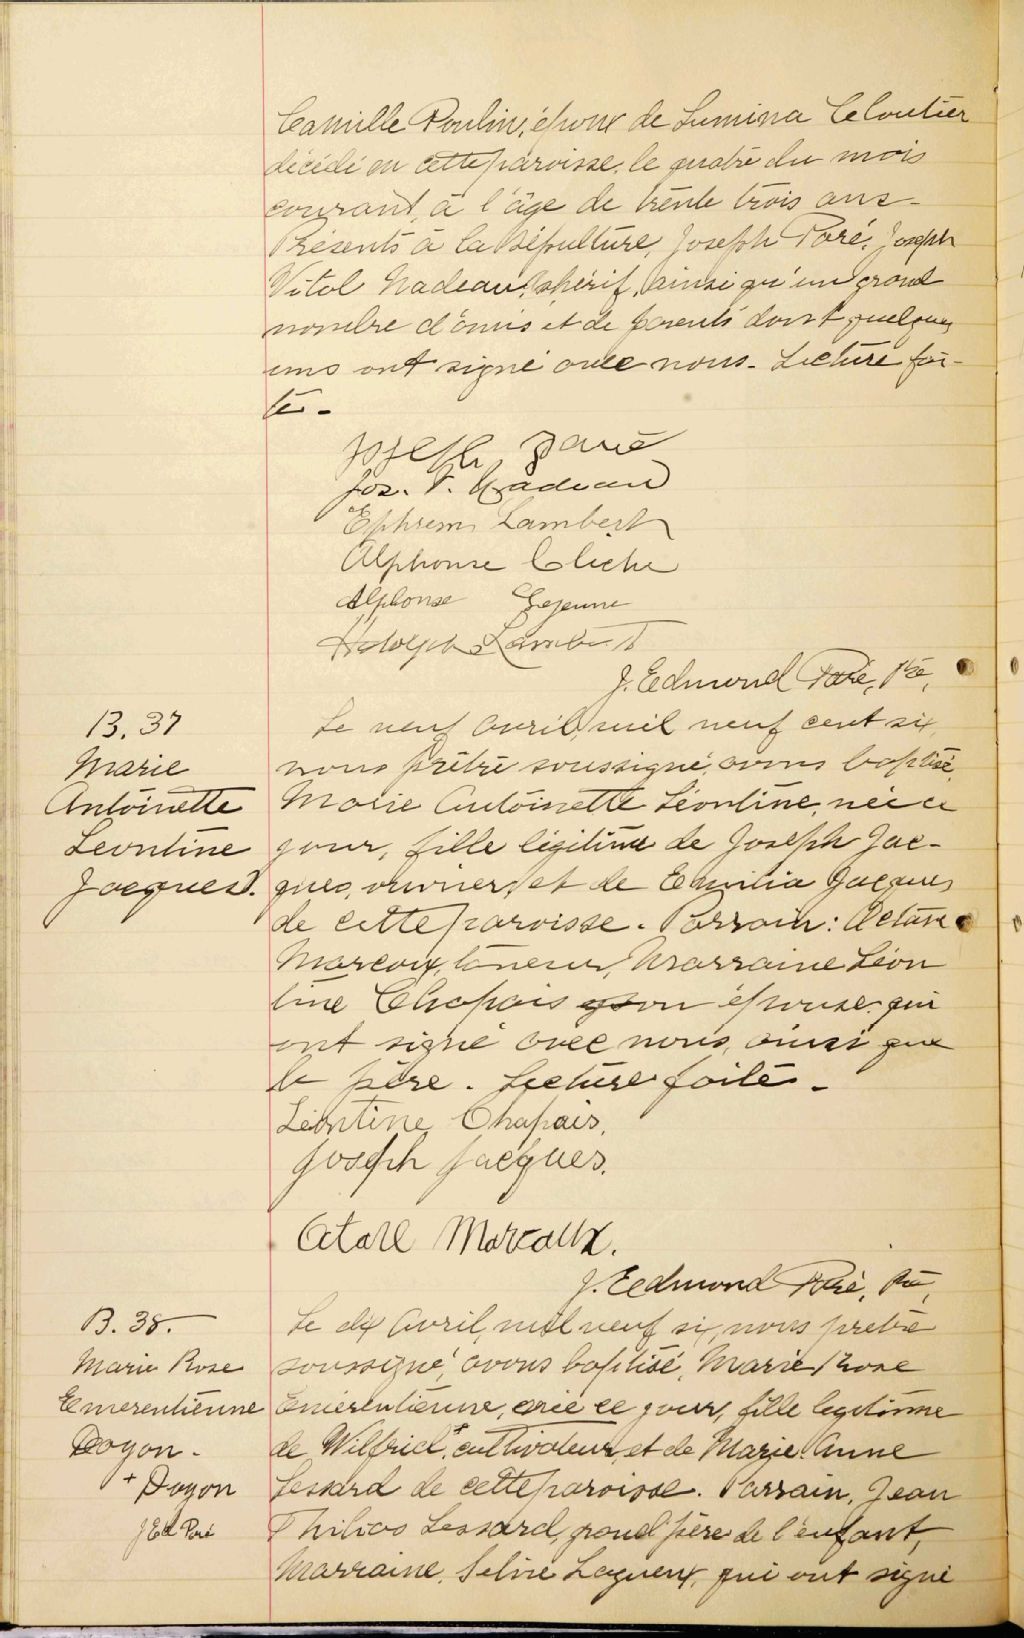 Camille Poulin, époux de Lumina Cloutier
décédé en cette paroisse, le quatre du mois
courant, à l'âge de trente trois ans-
Présents à la sépulture, Joseph Paré, Joseph
Vital Nadeau, shérif, ainsi qu'un grand
nombre d'amis et de parents dont quelques
uns ont signé avec nous- Lecture fai-
te-
Joseph Paré
Jos. V. Nadeau
Ephrem Lambert
Alphonse Cliche
Alphonse Lejeune
Adolphe Lambert
J. Edmond Paré, Ptre,
B. 37
Marie
Antoinette
Leontine
Jacques.
Le neuf avril, mil neuf cent six,
nous prêtre soussigné, avons baptisé,
Marie Antoinette Léontine, née ce
jour, fille légitime de Joseph Jac-
ques, ouvrier, et de Emilia Jacques
de cette paroisse. Parrain: Octave
Marcoux, taneur, Marraine Léon
tine Chapais son épouse qui
ont signé avec nous, ainsi que
le père. Lecture faite.-
Léontine Chapais,
Joseph Jacques.
Marcoux.
J. Edmond Paré, Ptre,
B. 38.
Marie Rose
Emerentienne
Doyon-
+ Doyon
J Ed Paré
Le dix Avril, mil neuf six, nous prêtre
soussigné, avons baptisé, Marie Rose
Emérentienne, née ce jour, fille legitime
de Wilfrid+, cultivateur, et de Marie Anne
Lessard de cette paroisse. Parrain, Jean
Thilias Lessard, grand'père de l'enfant,
Marraine, Lagueux, qui ont signé